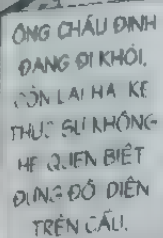 ÔNG CHÁU ĐỊNH
ĐANG ĐI KHỎI,
CÒN LẠI HAI KẺ
THỰC SỰ KHÔNG
HỀ QUEN BIẾT
ĐỨNG ĐỐI DIỆN
TRÊN CẦU.